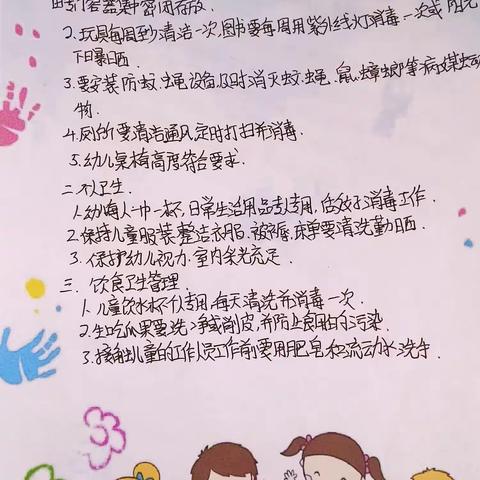 专门容器集中密闭存放
2.玩具每周到清洁一次,图书要每周用紫外线灯消毒一次或阳光
下日暴晒.
3.要安装防蚊、蝇设备及时消灭蚊、蝇、鼠、蟑螂等病媒虫动
物.
4.厕所要清洁通风定时打扫并消毒.
5.幼儿桌椅高度符合要求.
二.个人卫生.
1.幼儿每人一巾一杯,日常生活用品专人专用,做好消毒工作.
2.保持儿童服装整洁衣服、被褥、床单要清洗勤晒.
3.保护幼儿视力.室内采光充足.
三.饮食卫生管理.
1.儿童饮水杯个人专用.每天清洗并消毒一次.
2.生吃瓜果要洗净或削皮,并防止食用的污染.
3.接触儿童的工作人员工作前要用肥皂和流动水洗手.